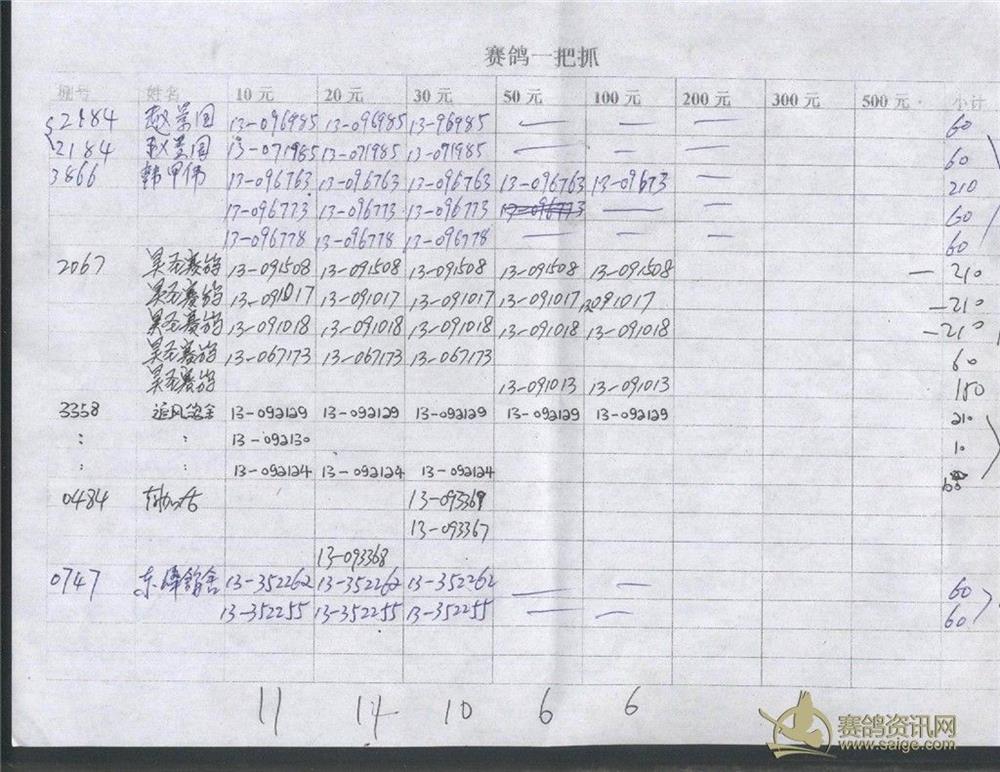 赛鸽一把抓
棚号 姓名 10元 20元 30元 50元 100元 200元 300元 500元 小计
2184 赵景国 13-096985 13-096985 13-96985 — — — 60
2184 赵景国 13-071985 13-071985 13-071985 — — — 60
3866 韩甲伟 13-096763 13-096763 13-096763 13-096763 13-09673 — 210
17-096773 13-096773 13-096773 — — 60
13-096778 13-096778 13-096778 — — — 60
2067 昊圣赛鸽 13-091508 13-091508 13-091508 13-091508 13-091508 — 210
昊圣赛鸽 13-091017 13-091017 13-091017 13-091017 13091017 — 210
昊圣赛鸽 13-091018 13-091018 13-091018 13-091018 13-091018 — 210
昊圣赛鸽 13-067173 13-067173 13-067173 60
昊圣赛鸽 13-091013 13-091013 150
3358 追风鸽舍 13-092129 13-092129 13-092129 13-092129 13-092129 210
: : 13-092130 10
: : 13-092124 13-092124 13-092124 60
0484 13-093369
13-093367
13-093368
0747 东峰鸽舍 13-352262 13-352262 13-352262 — — 60
13-352255 13-352255 13-352255 — — 60
11 14 10 6 6
赛鸽资讯网
www.saige.com